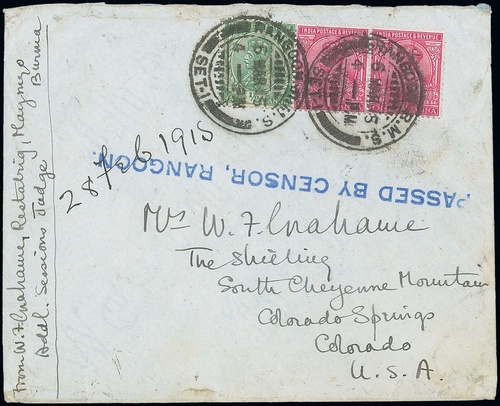 INDIA POSTAGE & REVENUE
INDIA POSTAGE & REVENUE
RANGOON R.M.S.
SET-1
R.M.S.
SET-1
28 Feb 1915
PASSED BY CENSOR, RANGOON.
From W. F. Grahame, Restalrig, Maymyo
Burma
Addl. Sessions Judge
Mrs W. F. Grahame
The Shieling
South Cheyenne Mountain
Colorado Springs
Colorado
U. S. A.